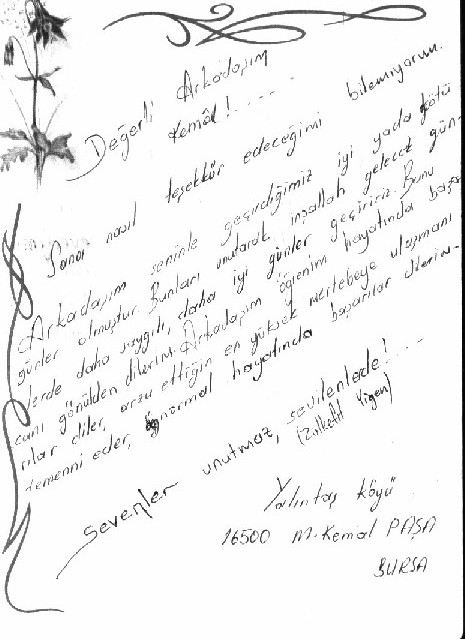 Değerli Arkadaşım
Kemâl!.....
Sana nasıl teşekkür edeceğimi bilemiyorum.
Arkadaşım seninle geçirdiğimiz iyi yada kötü
günler olmuştur. Bunları unutarak inşallah gelecek gün-
lerde daha saygılı, daha iyi günler geçiririz. Bunu
canı gönülden dilerim. Arkadaşım öğrenim hayatında başa-
rılar diler, arzu ettiğin en yüksek mertebeye ulaşmanı
temenni eder, normal hayatında başarılar dilerim-
sevenler unutmaz, sevilenlede!...
(Zülkefil Yigen)
Yalıntaş köyü
16500 M. Kemal PAŞA
BURSA